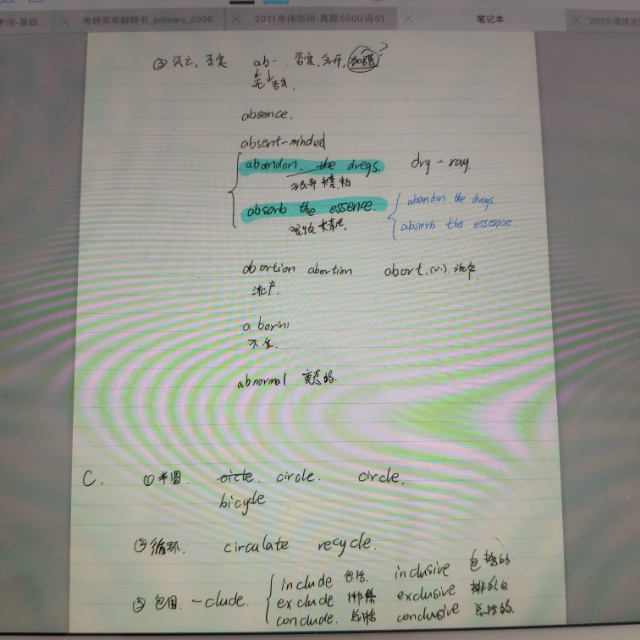 考研英语解释书_primary_2096
2021朱伟恋词-真题5500词01
笔记本
② 否定 ab- 否定.
absence.
absent-minded
abandon the dregs. dry - ray.
absorb the essence. abandon the dregs
absorb the essence
abortion abortion abort.(v).流产
流产.
abnormal 变态的.
C. ①半圆. circle. circle.
bicycle
②循环. circulate recycle.
③包围. -clude. include 包括. inclusive 包括的
exclude 排除 exclusive 排外的
conclude. 总结 conclusive 总结的.